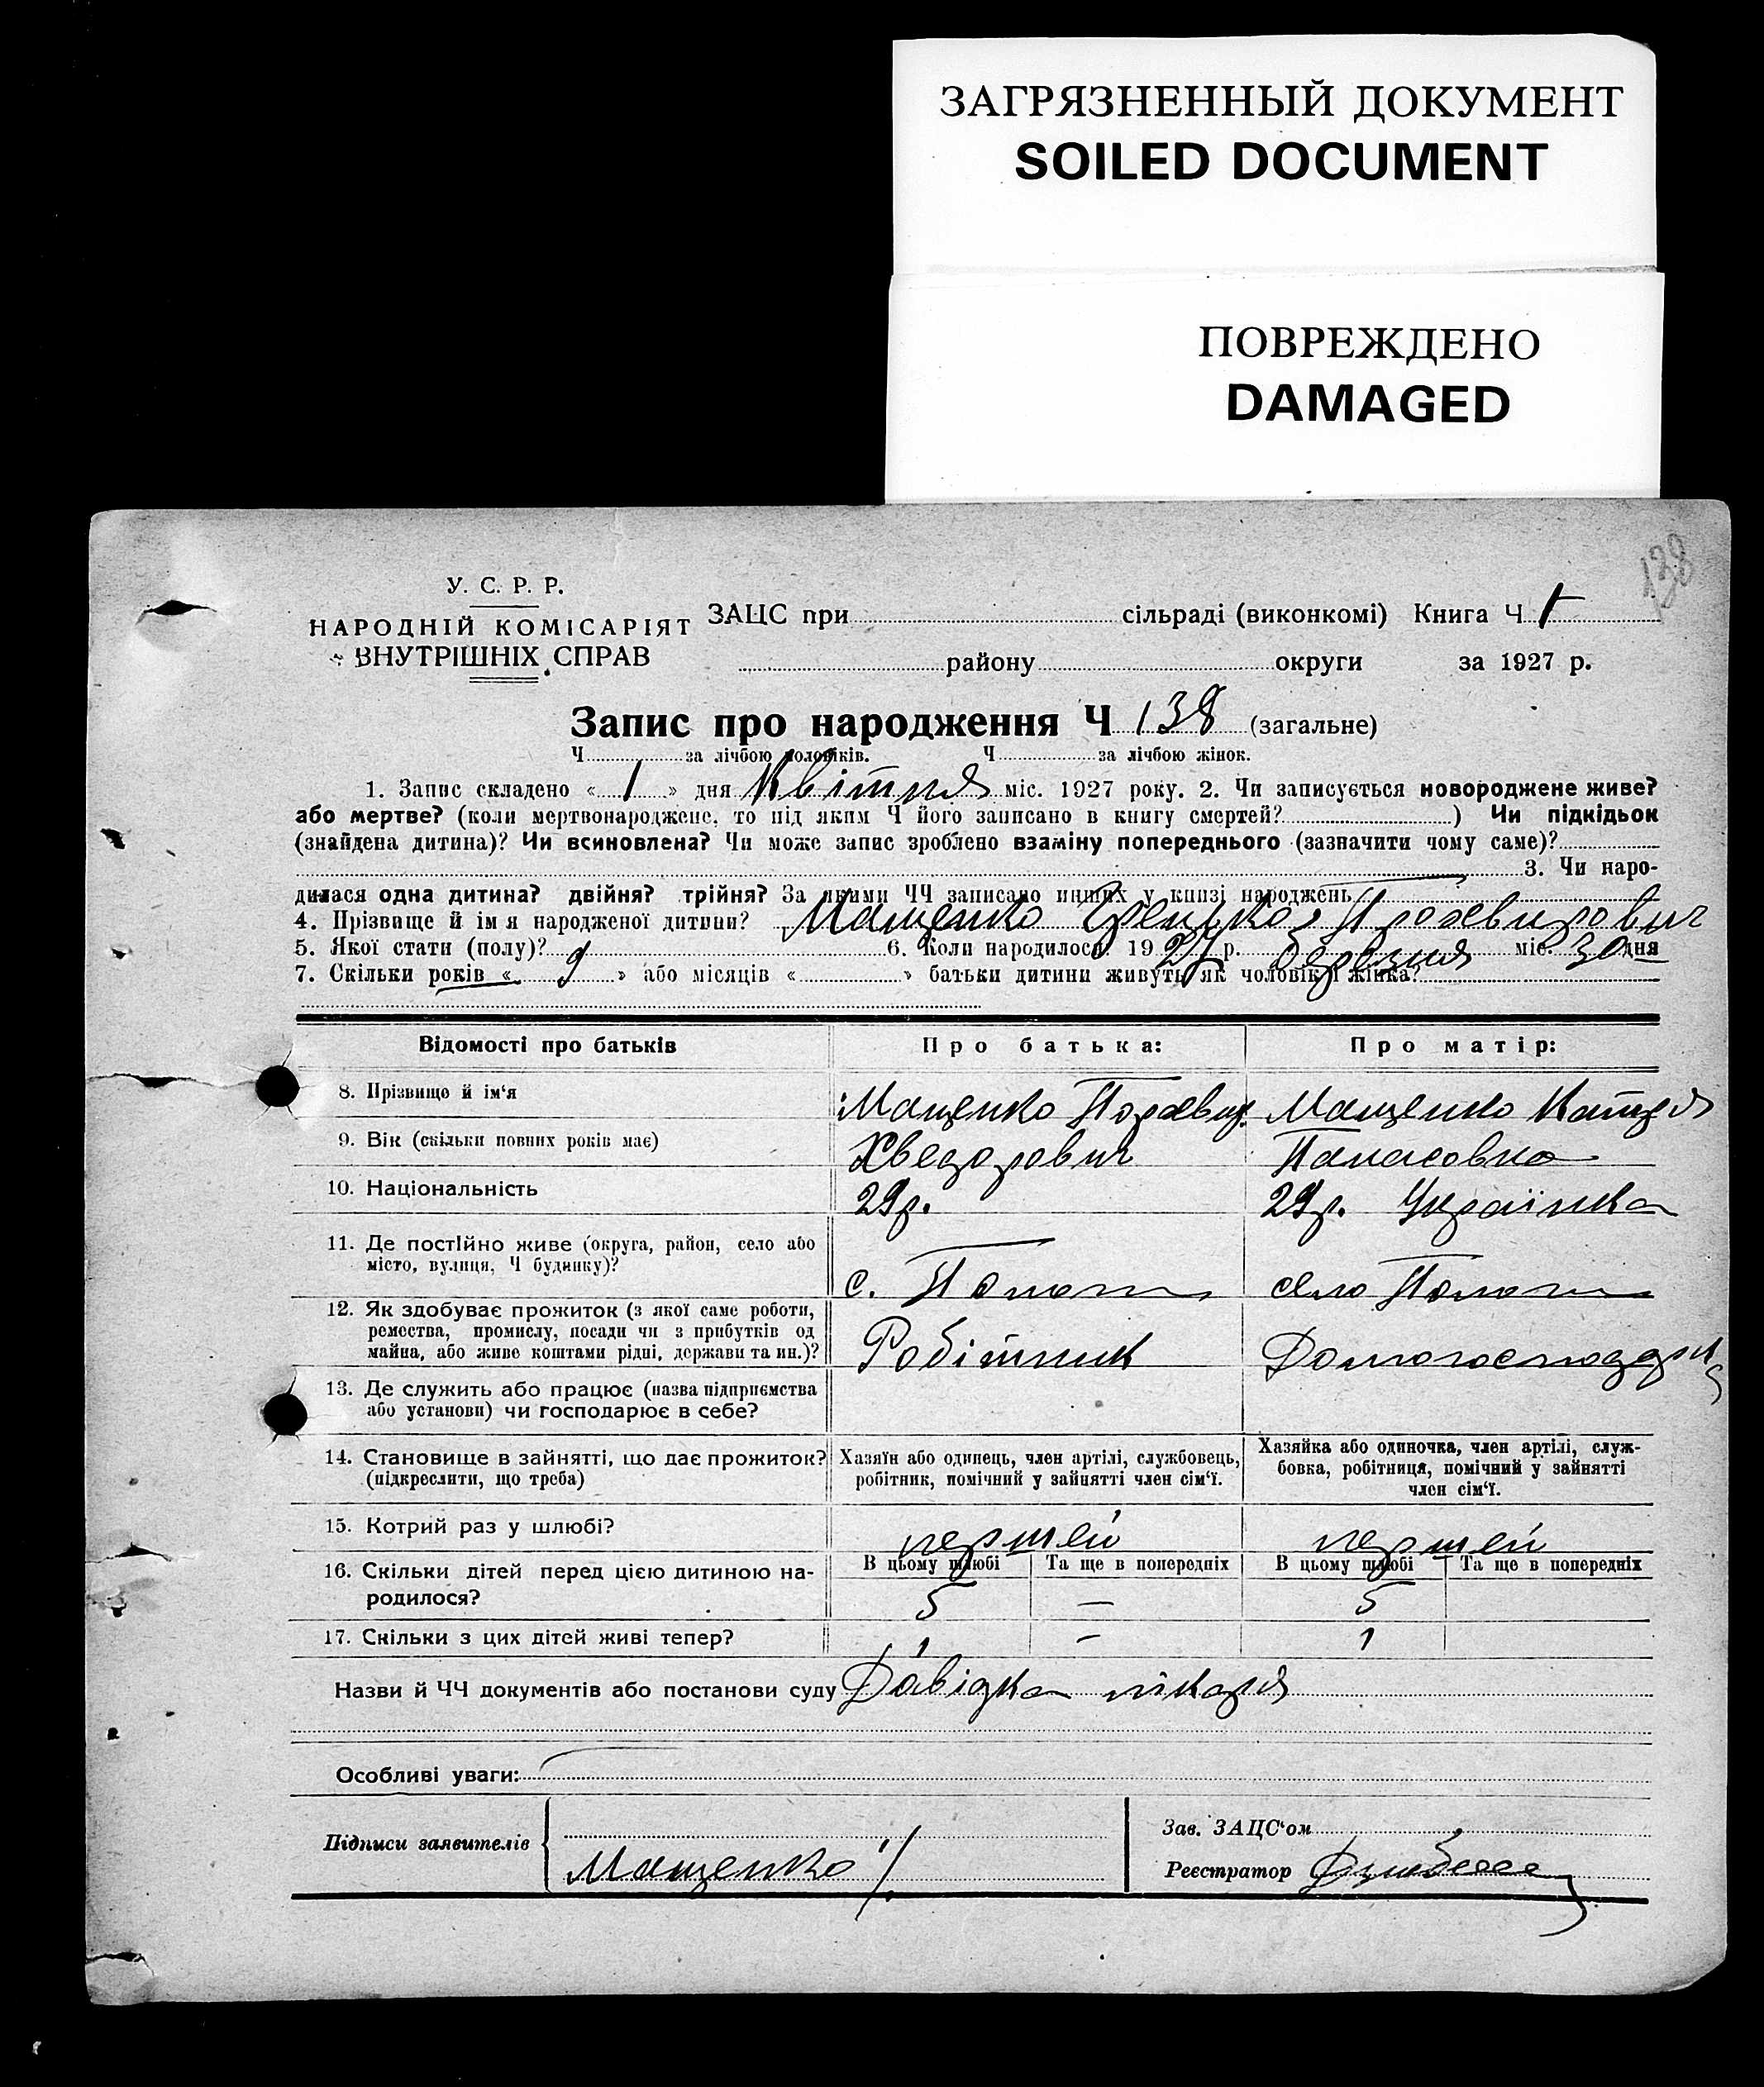 ЗАГРЯЗНЕННЫЙ ДОКУМЕНТ
SOILED DOCUMENT
ПОВРЕЖДЕНО
DAMAGED
138
У. С. Р. Р.
НАРОДНІЙ КОМІСАРІЯТ
ВНУТРІШНІХ СПРАВ
ЗАЦС при сільраді (виконкомі) Книга Ч
району округи за 1927 р.
Запис про народження Ч 138 (загальне)
Ч за лічбою чоловіків. Ч за лічбою жінок.
1. Запис складено « 1 » дня Квітня міс. 1927 року. 2. Чи записується новороджене живе?
або мертве? (коли мертвонароджене, то під яким Ч його записано в книгу смертей? ) Чи підкідьок
(знайдена дитина)? Чи всиновлена? Чи може запис зроблено взаміну попереднього (зазначити чому саме)?
3. Чи наро-
дилася одна дитина? двійня? трійня? За якими ЧЧ записано инших у книзі народжень
4. Прізвище й ім я народженої дитини? Мащенко
5. Якої стати (полу)? 6. Коли народилося 1927 р. березня міс. 30 дня
7. Скільки років « 9 » або місяців « » батьки дитини живуть як чоловік і жінка?
Відомості про батьків Про батька: Про матір:
8. Прізвище й ім‘я Мащенко Мащенко
9. Вік (скільки повних років має) Хведорович Панасовна
10. Національність 29р. 29р. Українка
11. Де постійно живе (округа, район, село або
місто, вулиця, Ч будинку)?
с. Пологи село Пологи
12. Як здобуває прожиток (з якої саме роботи,
ремества, промислу, посади чи з прибутків од
майна, або живе коштами рідні, держави та ин.)?
Робітник
13. Де служить або працює (назва підприємства
або установи) чи господарює в себе?
14. Становище в зайнятті, що дає прожиток?
(підкреслити, що треба)
Хазяїн або одинець, член артілі, службовець,
робітник, помічний у зайнятті член сім‘ї.
Хазяйка або одиночка, член артілі, служ-
бовка, робітниця, помічний у зайнятті
член сім‘ї.
15. Котрий раз у шлюбі? першей першей
В цьому шлюбі Та ще в попередніх В цьому шлюбі Та ще в попередніх
16. Скільки дітей перед цією дитиною на-
родилося?
5 — 5
17. Скільки з цих дітей живі тепер? 1 — 1
Назви й ЧЧ документів або постанови суду Довідка лікаря
Особливі уваги:
Підписи заявителів
Мащенко
Зав. ЗАЦС‘ом
Реєстратор